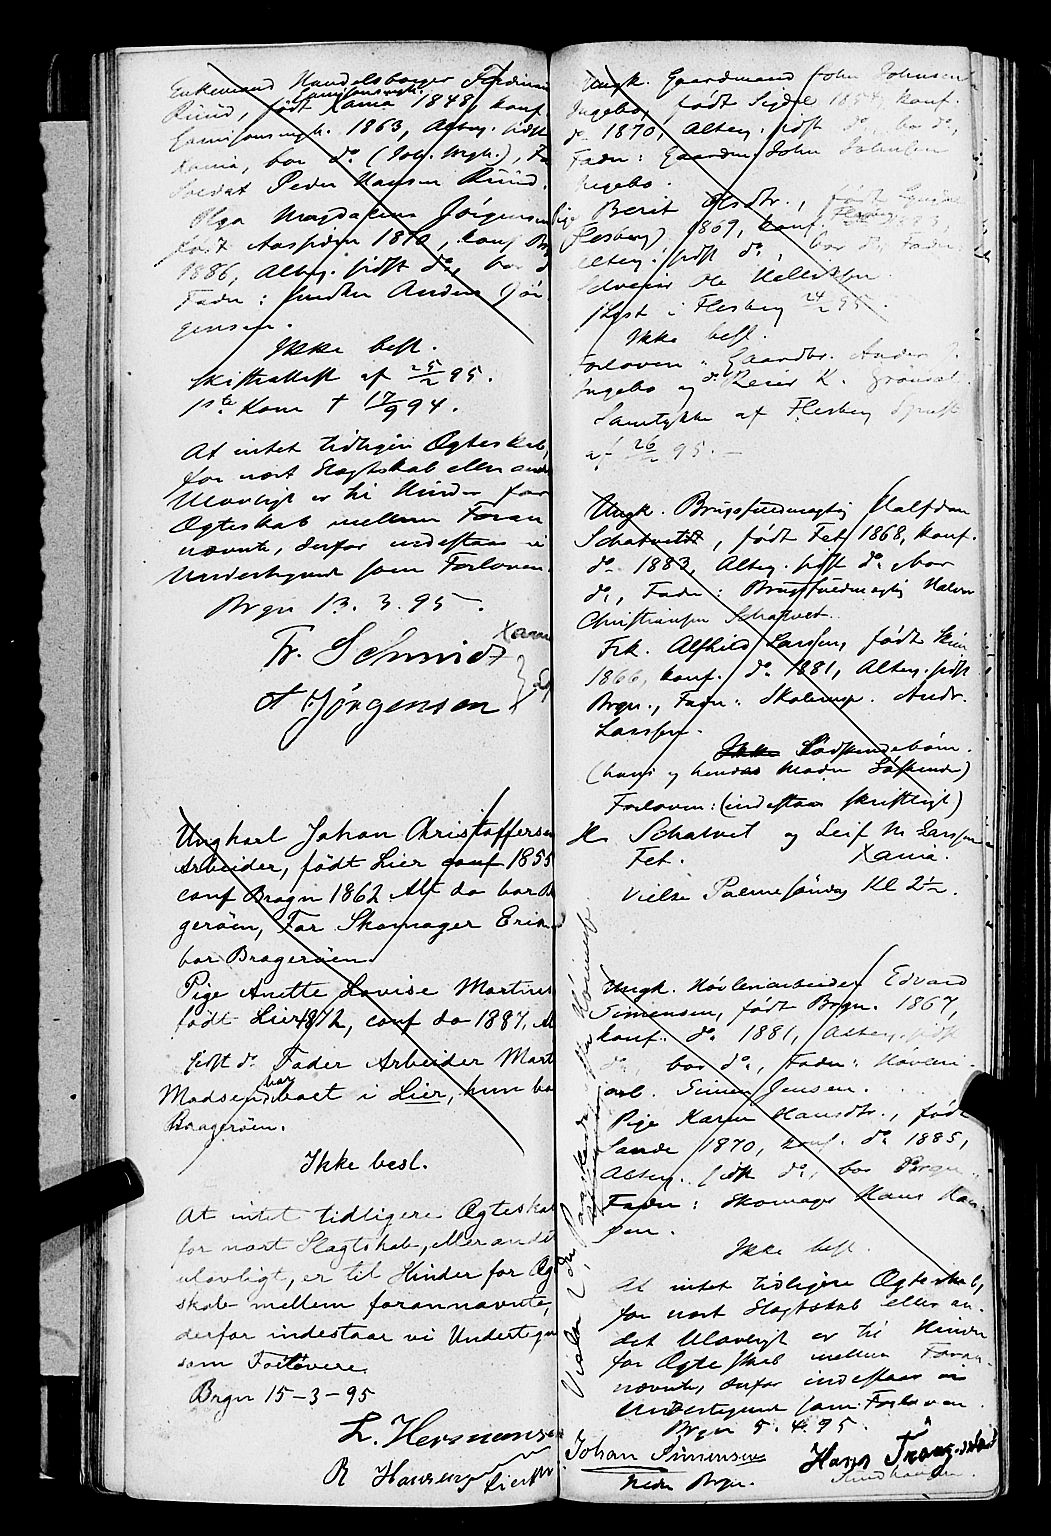 Enkemand Handelsborger Ferdinan
Rüüd, født Xania 1848, konf.
Garnisonsmgh.
Garnisonsmgh. 1863, Alterg. sidst
Xania, bor do (Joh. mgh.), Fa
Soldat Peder Hansen Rüüd.
Olga Magdalena Jörgensen
født Aassiden 1870, konf. Br
1886, Alterg. sidst do, bor d
Fader: Smeden Anders Jör-
gensen.
Ikke besl.
Skifteattest af 25/2 95.
1ste Kone † 17/9 94.
At intet tidligere Ægteskab,
for nært Slagtskab eller andet
Ulovligt er til Hinder for
Ægteskab mellem Foran
nævnte, derfor indestaar vi
Undertegnede som Forlovere.
Brgn 13. 3. 95.
Fr. Schmidt Xania
A Jørgensen
Ungkarl Johan Christoffersen
Arbeider, født Lier conf 1855
conf Bragn 1862 Alt do bor B
gerøen, Far Skomager Erik
bor Bragerøen.
Pige Anette Lovise Martines
født Lier 1872, conf do 1887. Al
sidst do Fader Arbeider Mart
Madsen bar
boet i Lier, hun bo
Bragerøen.
Ikke besl.
At intet tidligere Ægteskab
for nært Slagtskab, eller andet
ulovligt, er til Hinder for Æg
skab mellem forannævnte,
derfor indestaar vi Undertegn
som Forlovere.
Brgn 15-3-95
L. Hermansen
R Hansen Lier
Ungk. Gaardmand John Johnsen
Ingebo, født Sigdal 1854, konf.
do 1870, Alterg. sidst do, bor do,
Fader: Gaardm. John Johnsen
Ingebo.
Pige Berit Olsdtr., født
Flesberg) 1869, konf. Flesberg
Alterg. sidst do, bor do, Fader:
Selveier Ole Helliksen
Lyst i Flesberg 24/2 95.
Ikke besl.
Forlovere: Gaardbr. Anders
Ingebo og do Reier K.
Samtykke af Flesberg Spræst
af 26/2 95.
Ungk. Brugsfuldmægtig Halfdan
Schatvet, født Fet 1868, konf.
do 1883, Alterg. sidst do, bor
do, Fader: Brugsfuldmægtig Halvor
Christiansen Schatvet.
Frk. Alfhild Larssen, født
1866, konf. do 1881, Alterg. sidst
Brgn., Fader: Skoleinsp. Andr.
Larssen.
Ikke Sødskendebørn.
(hans og hendes Moder Søskende)
Forlovere: (indestaar skriftligt)
H. Schatvet og Leif M Larssen
Fet. Xania.
Vielse Palmesøndag Kl 2½.
Ungk. Høvleriarbeider Edvard
Simensen, født Brgn. 1867,
konf. do 1881, Alterg. sidst
do bor do, Fader: Høvleri-
arb. Simen Jensen.
Pige Karen Hansdtr., født
Sande 1870, konf. do 1885,
Alterg. sidst do, bor Brgn.
Fader: Skomager Hans Han-
sen.
Ikke besl.
At intet tidligere Ægteskab,
for nært Slagtskab eller an-
det Ulovligt er til Hinder
for Ægteskab mellem Foran-
nævnte, derfor indestaar vi
Undertegnede som Forlovere.
Brgn 5. 4. 95.
Johan Simensen Hans
Nedre Brgn.